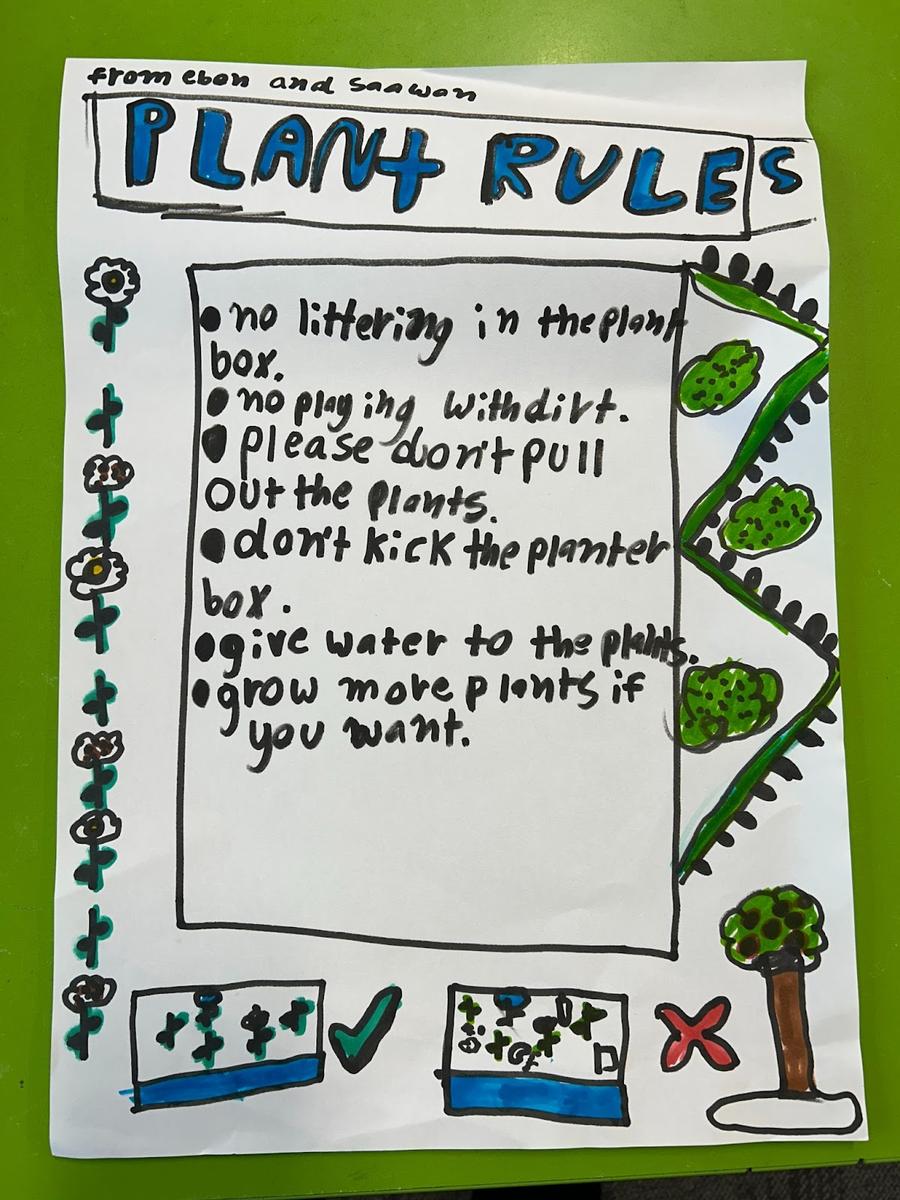 from ebon and Saawan
PLANT RULES
• no littering in the plant
box.
• no playing with dirt.
• please don't pull
out the plants.
• don't kick the planter
box.
• give water to the plants.
• grow more plants if
you want.